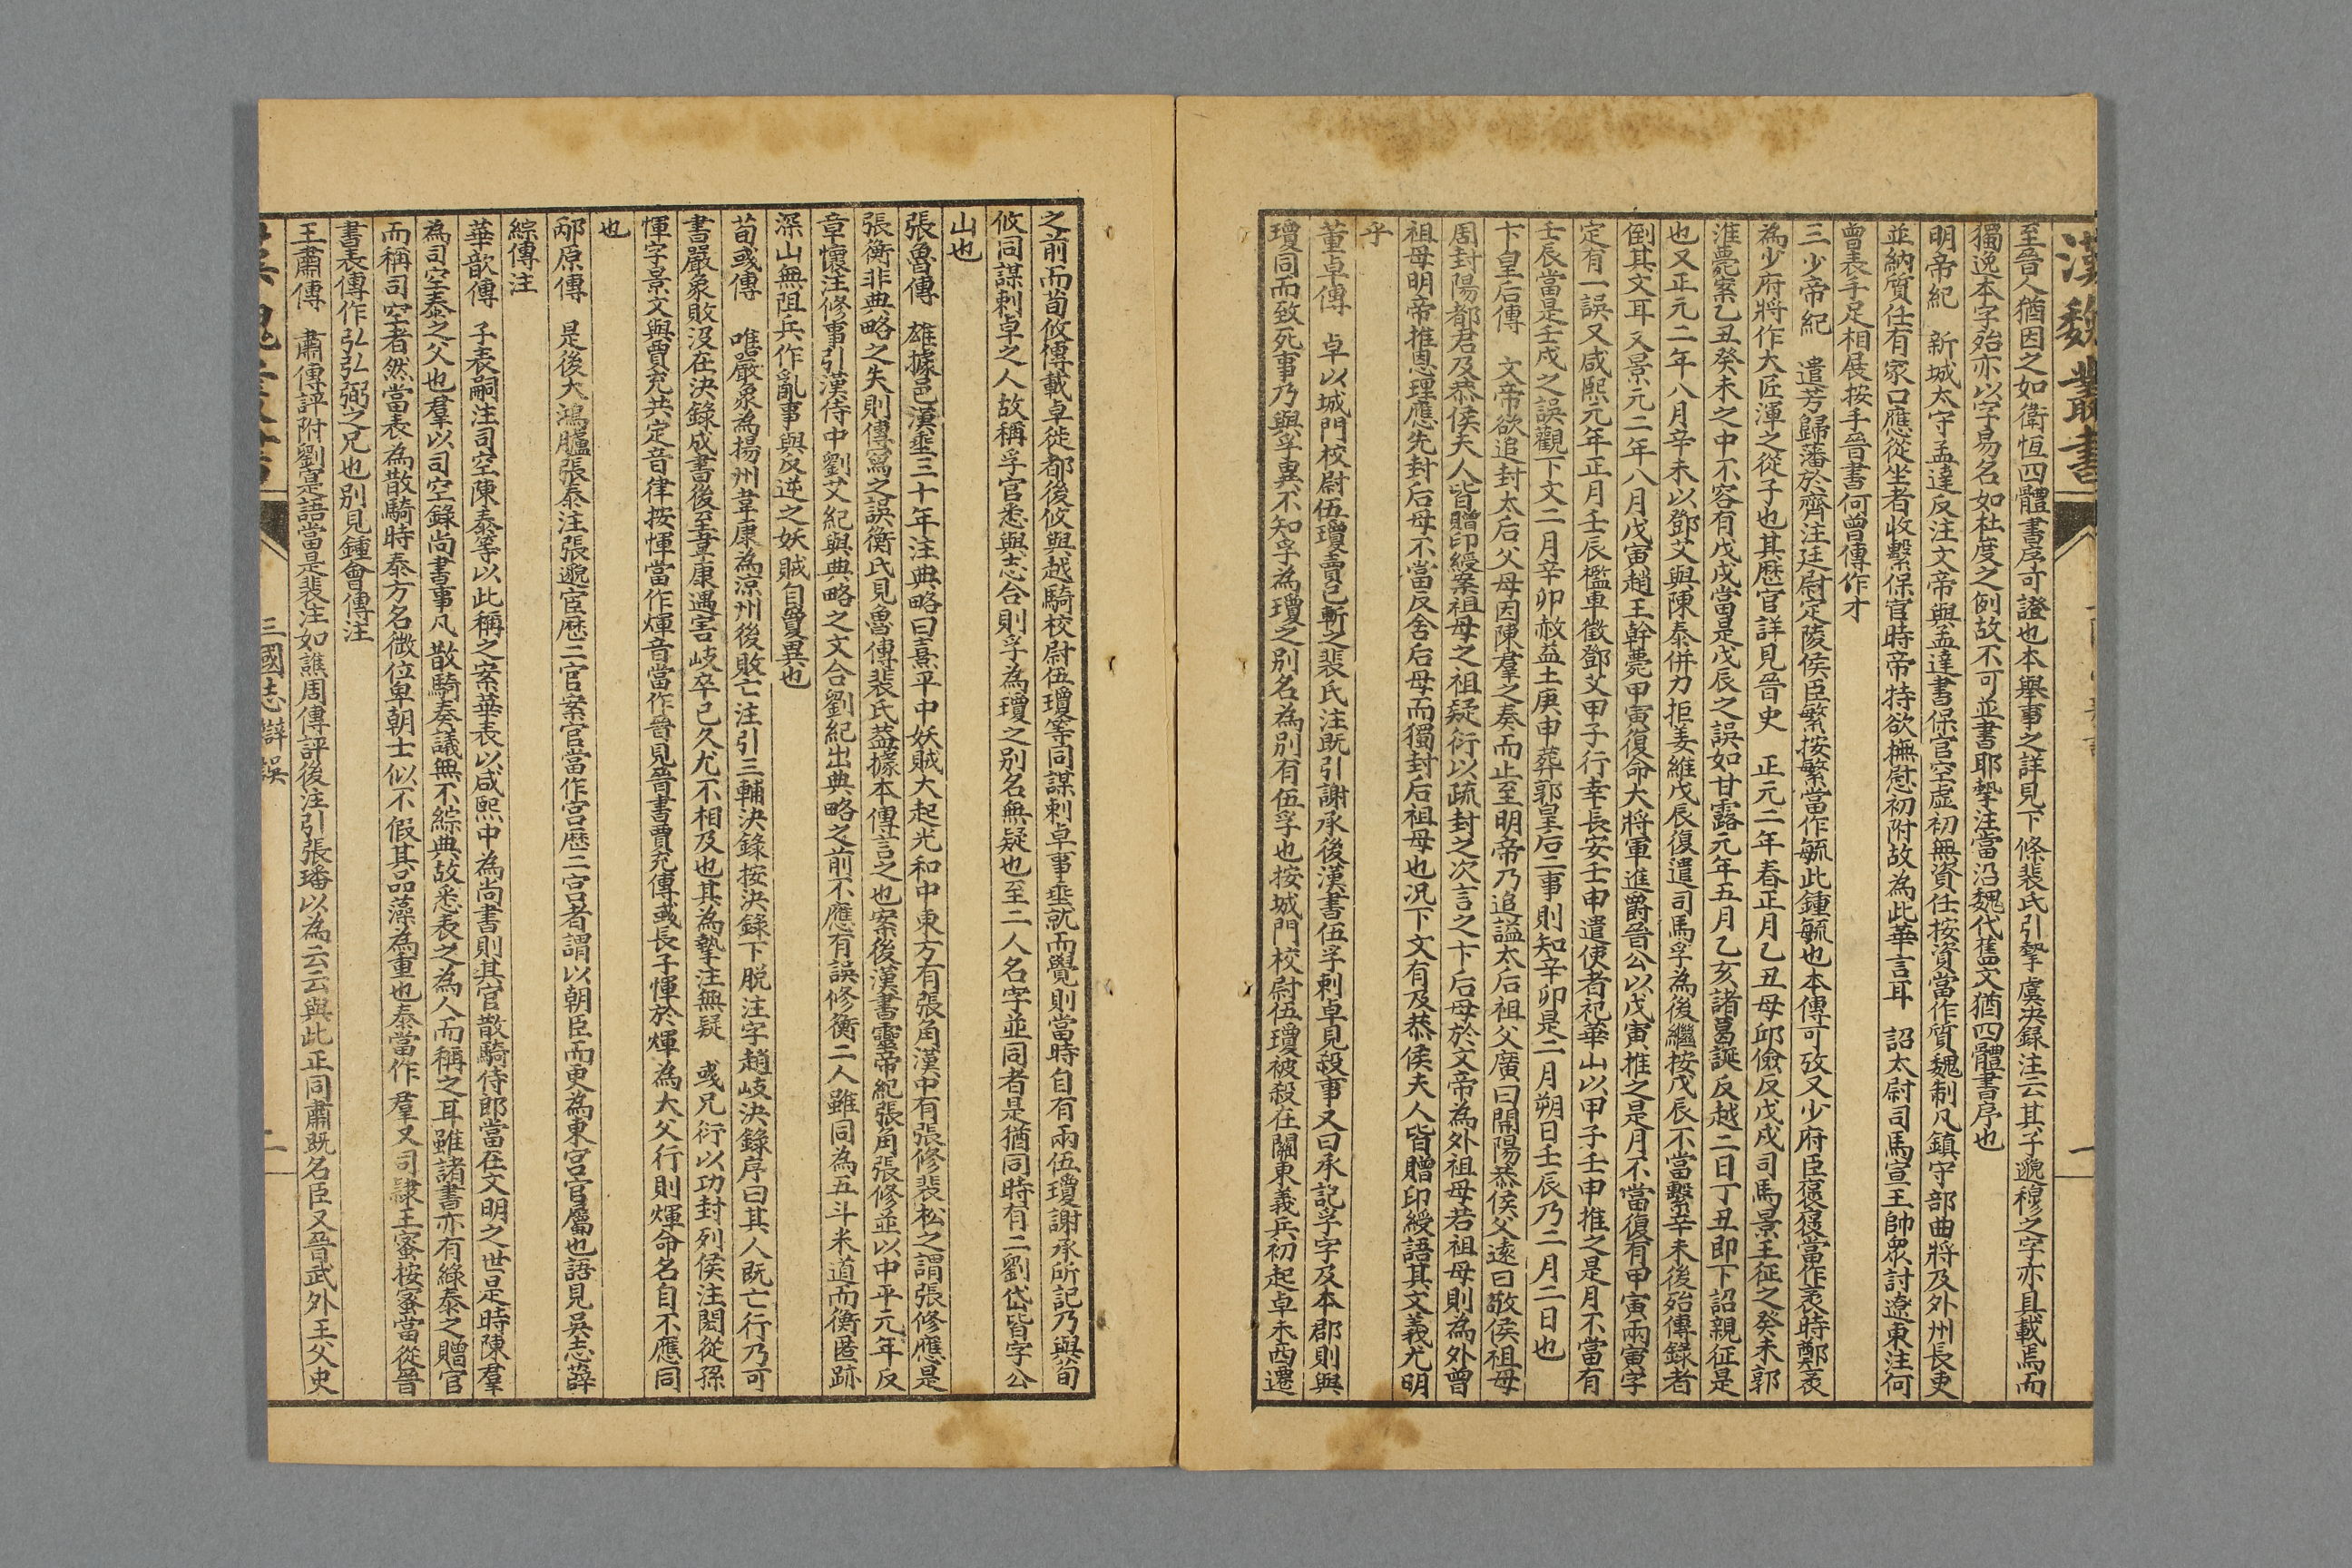 漢魏叢書
一
至晉人猶因之如衛恒四體書序可證也本舉事之詳見下條裴氏引摯虞決録注云其子邈穆之字亦且載焉而
獨逸本字殆亦以字易名如杜度之例故不可並書耶摯注當沿魏代舊文猶四體書序也
明帝紀　新城太守孟達反注文帝與孟達書保官空虛初無資任按資當作質魏制凡鎮守部曲將及外州長吏
並納質任有家口應從坐者收繫保官時帝特欲撫慰初附故為此華言耳　詔太尉司馬宣王帥衆討遼東注何
曾表手足相展按手晉書何曾傳作才
三少帝紀　遣芳歸藩於齊注廷尉定陵侯臣繁按繁當作毓此鍾毓也本傳可攷又少府臣褒褒當作袤時鄭袤
為少府將作大匠渾之從子也其歷官詳見晉史　正元二年春正月乙丑母邱儉反戊戌司馬景王征之癸未郭
淮薨案乙丑癸未之中不容有戊戌當是戊辰之誤如甘露元年五月乙亥諸葛誕反越二日丁丑即下詔親征是
也又正元二年八月辛未以鄧艾與陳泰併力拒姜維戊辰復遣司馬孚為後繼按戊辰不當繫辛未後殆傳錄者
倒其文耳又景元二年八月戊寅趙王幹薨甲寅復命大將軍進爵晉公以戊寅推之是月不當復有甲寅兩寅字
定有一誤又咸熙元年正月壬辰檻車徵鄧艾甲子行幸長安壬申遣使者祀華山以甲子壬申推之是月不當有
壬辰當是壬戌之誤觀下文二月辛卯赦益土庚申葬郭皇后二事則知辛卯是二月朔日壬辰乃二月二日也
卞皇后傳　文帝欲追封太后父母因陳羣之奏而止至明帝乃追謚太后祖父廣曰開陽恭侯父遠曰敬侯祖母
周封陽都君及恭侯夫人皆贈印綬案祖母之祖疑衍以疏封之次言之卞后母於文帝為外祖母若祖母則為外曾
祖母明帝推恩理應先封后母不當反舍后母而獨封后祖母也況下文有及恭侯夫人皆贈印綬語其文義尤明
乎
董卓傳　卓以城門校尉伍瓊賣己斬之裴氏注既引謝承後漢書伍孚刺卓見殺事又曰承記孚字及本郡則與
瓊同而致死事乃與孚異不知孚為瓊之別名為別有伍孚也按城門校尉伍瓊被殺在關東義兵初起卓未西遷
之前而荀攸傳載卓徙都後攸與越騎校尉伍瓊等同謀刺卓事垂就而覺則當時自有兩伍瓊謝承所記乃與荀
攸同謀刺卓之人故稱孚官悉與志合則孚為瓊之別名無疑也至二人名字並同者是猶同時有二劉岱皆字公
山也
張魯傳　雄據邑漢垂三十年注典略曰熹平中妖賊大起光和中東方有張角漢中有張修裴松之謂張修應是
張衡非典略之失則傳寫之誤衡氏見魯傳裴氏蓋據本傳言之也案後漢書靈帝紀張角張修並以中平元年反
章懷注修事引漢侍中劉艾紀與典略之文合劉紀出典略之前不應有誤修衡二人雖同為五斗米道而衡匿跡
深山無阻兵作亂事與反逆之妖賊自夐異也
荀彧傳　唯嚴象為揚州韋康為涼州後敗亡注引三輔決錄按決錄下脱注字趙岐決錄序曰其人既亡行乃可
書嚴象敗沒在決錄成書後至韋康遇害岐卒已久尤不相及也其為摯注無疑　彧兄衍以功封列侯注閎從孫
惲字景文與賈充共定音律按惲當作煇音當作晉見晉書賈充傳彧長子惲於煇為大父行則煇命名自不應同
也
邴原傳　是後大鴻臚張泰注張邈宦歷二官案官當作宮歷二宮者謂以朝臣而更為東宮官屬也語見吳志薛
綜傳注
華歆傳　子表嗣注司空陳泰等以此稱之案華表以咸熙中為尚書則其官散騎侍郎當在文明之世是時陳羣
為司空泰之父也羣以司空錄尚書事凡散騎奏議無不綜典故悉表之為人而稱之耳雖諸書亦有緣泰之贈官
而稱司空者然當表為散騎時泰方名微位卑朝士似不假其品藻為重也泰當作羣又司隸王蜜按蜜當從晉
書表傳作弘弘弼之兄也別見鍾會傳注
王肅傳　肅傳評附劉寔語當是裴注如譙周傳評後注引張璠以為云云與此正同肅既名臣又晉武外王父史
三國志辯誤
二